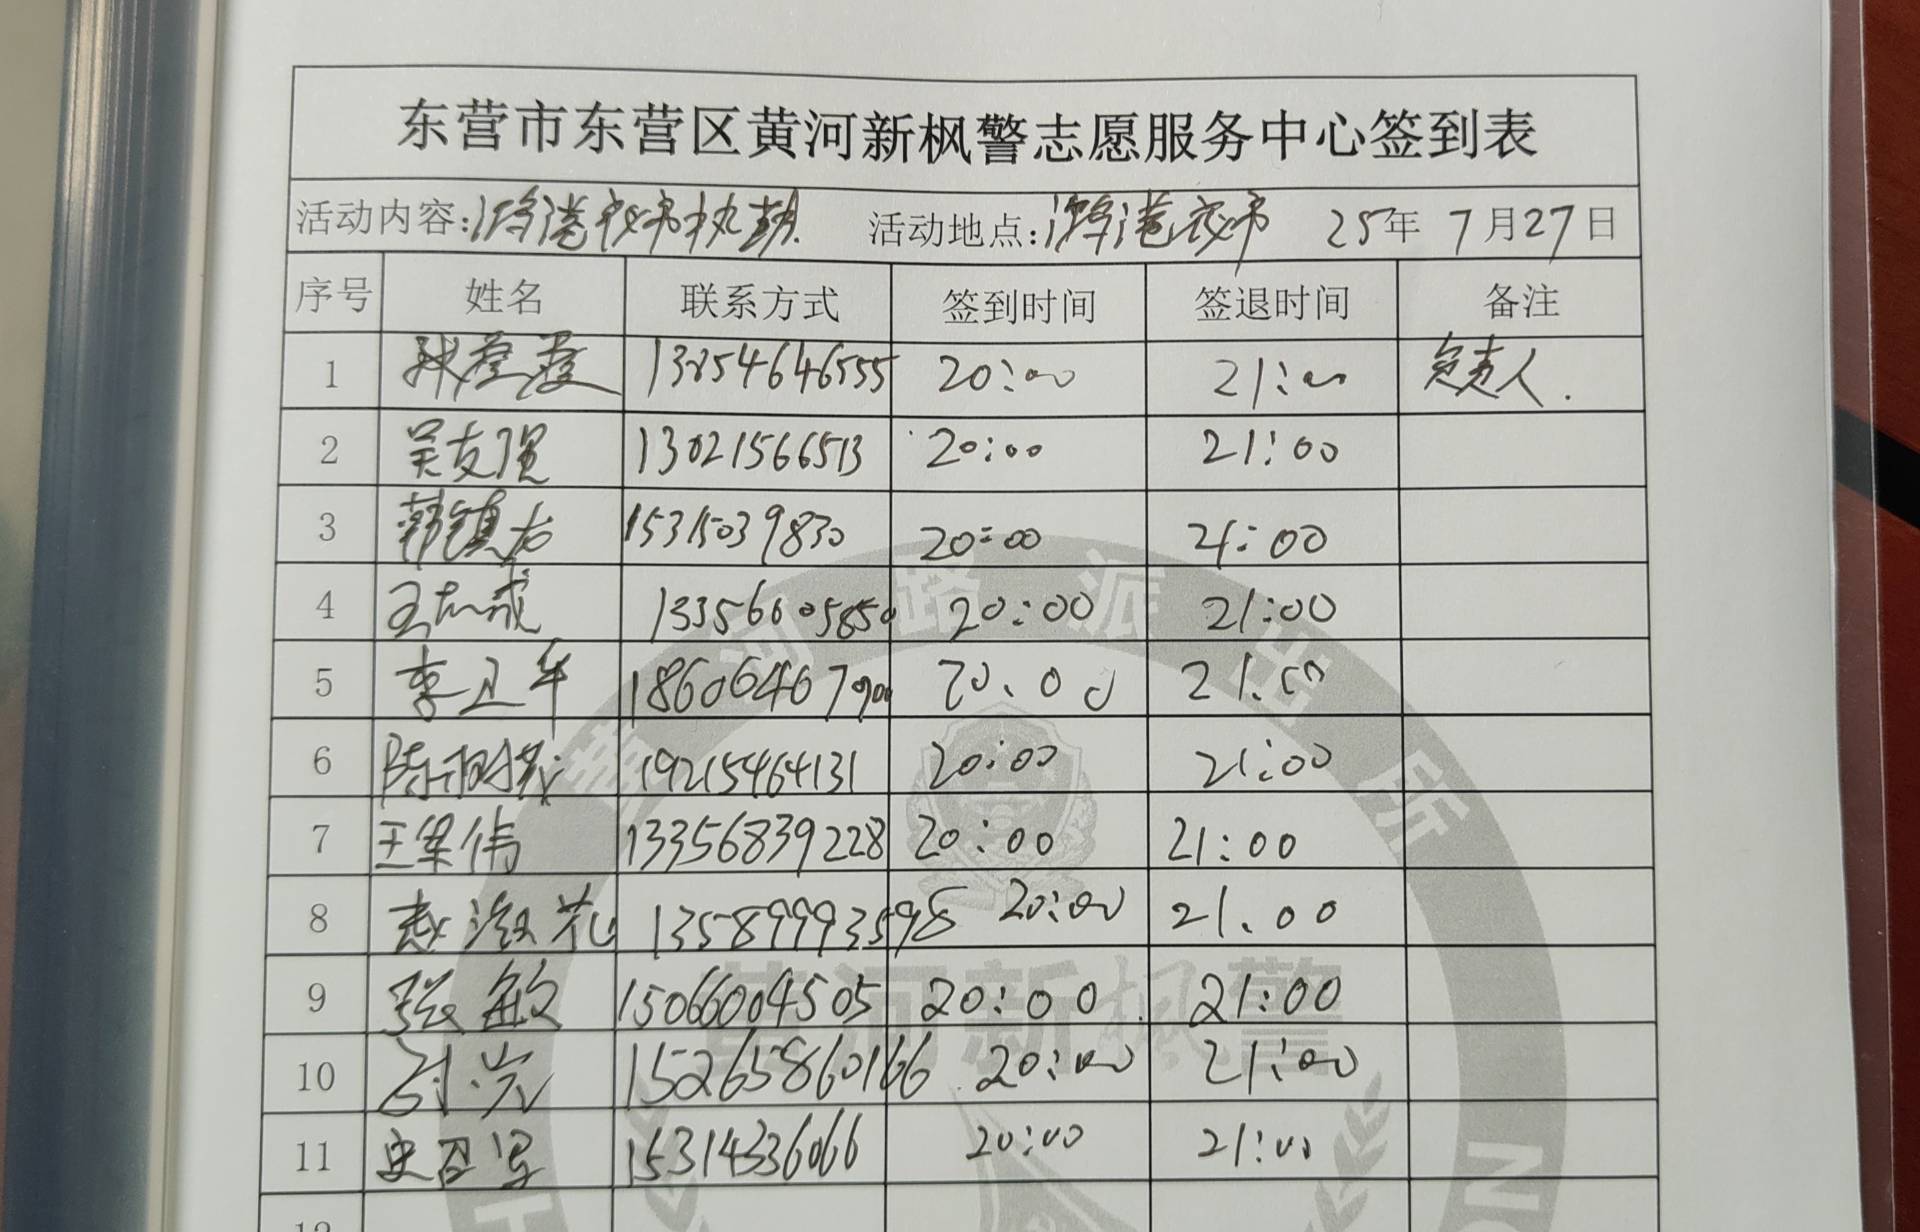 东营市东营区黄河新枫警志愿服务中心签到表
活动内容:鸿港夜市执勤. 活动地点:鸿港夜市 25年 7月27日
序号 姓名 联系方式 签到时间 签退时间 备注
1 13254646555 20:00 21:00 负责人.
2 吴友强 13021566513 20:00 21:00
3 韩镇左 15315039830 20:00 21:00
4 王志成 13356605850 20:00 21:00
5 李卫华 18606467900 20.00 21.00
6 陈 19215464131 20:00 21:00
7 王梁伟 13356839228 20:00 21:00
8 赵淑花 13589993598 20:00 21.00
9 张敏 15066004505 20:00 21:00
10 15265860166 20:00 21:00
11 史召军 15314336066 20:00 21:00
12
黄河路派出所
黄河新枫警